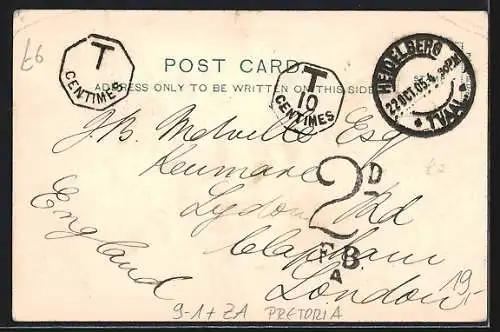 £6
T
CENTIMES
POST CARD
ADDRESS ONLY TO BE WRITTEN ON THIS SIDE
T
10
CENTIMES
HEIDELBERG
22 OCT. 05. 4. 30PM
TVAL.
J.B. Melville Esq
Kenmare
Lydon Rd
Clapham
London
England
2D
F.B.
A
19,-
9-1+ ZA PRETORIA